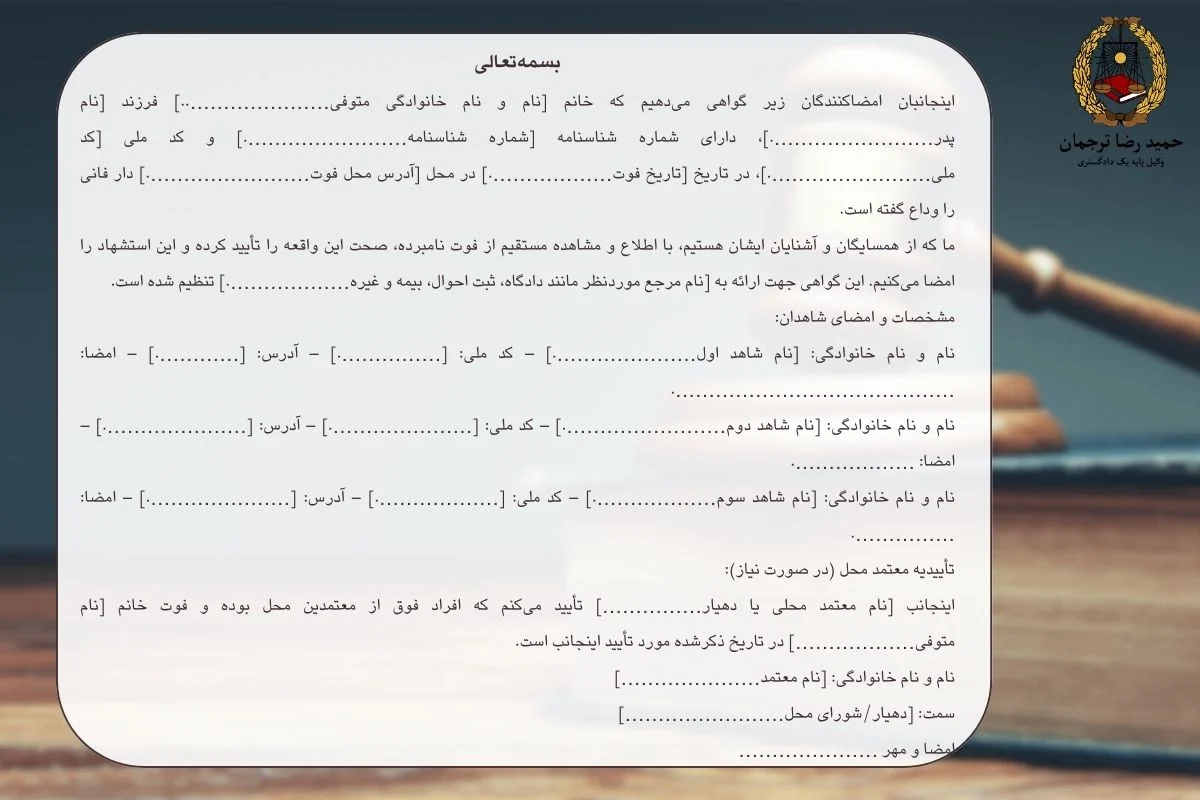 بسمه‌تعالی
اینجانبان امضاکنندگان زیر گواهی می‌دهیم که خانم [نام و نام خانوادگی متوفی.......................] فرزند [نام
پدر.........................]، دارای شماره شناسنامه [شماره شناسنامه.........................] و کد ملی [کد
ملی.........................]، در تاریخ [تاریخ فوت...................] در محل [آدرس محل فوت.........................] دار فانی
را وداع گفته است.
ما که از همسایگان و آشنایان ایشان هستیم، با اطلاع و مشاهده مستقیم از فوت نامبرده، صحت این واقعه را تأیید کرده و این استشهاد را
امضا می‌کنیم. این گواهی جهت ارائه به [نام مرجع موردنظر مانند دادگاه، ثبت احوال، بیمه و غیره...................] تنظیم شده است.
مشخصات و امضای شاهدان:
نام و نام خانوادگی: [نام شاهد اول......................] – کد ملی: [................] – آدرس: [.............] – امضا:
...........................................
نام و نام خانوادگی: [نام شاهد دوم.........................] – کد ملی: [......................] – آدرس: [......................] –
امضا: ...................
نام و نام خانوادگی: [نام شاهد سوم...................] – کد ملی: [...................] – آدرس: [......................] – امضا:
................
تأییدیه معتمد محل (در صورت نیاز):
اینجانب [نام معتمد محلی یا دهیار...............] تأیید می‌کنم که افراد فوق از معتمدین محل بوده و فوت خانم [نام
متوفی..................] در تاریخ ذکرشده مورد تأیید اینجانب است.
نام و نام خانوادگی: [نام معتمد.....................]
سمت: [دهیار/شورای محل........................]
امضا و مهر .....................
حمید رضا ترجمان
وکیل پایه یک دادگستری